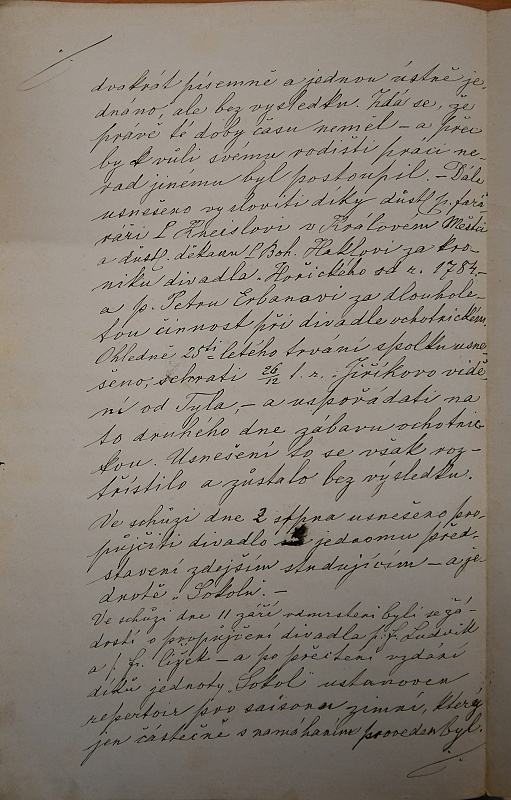 dvakrát písemně a jednou ústně je-
dnáno, ale bez výsledku. Zdá se, že
právě té doby času neměl – a přec
by k vůli svému rodišti práci ne-
rad jinému byl postoupil. – Dále
usneseno vysloviti díky důst. p. fará-
ráři Kneislovi v Králověm Městci
a důst. děkanu Boh. Haklovi za kro-
niku divadla Hořického od r. 1784. –
a p. Petru Erbanovi za dlouhole-
tou činnost při divadle ochotnickém.
Ohledně 25ti letého trvání spolku usne-
šeno, sehrati 26/12 t. r. Jiříkovo vidě-
ní od Tyla, – a uspořádati na
to druhého dne zábavu ochotnic-
kou. Usnešení to se však roz-
tříštilo a zůstalo bez výsledku.
Ve schůzi dne 2 srpna usnešeno pro-
půjčiti divadlo jednomu před-
stavení zdejším studujícím – a je-
dnotě „Sokol". –
Ve schůzi dne 11 září odmrštěni byli se žá-
dostí o propůjčení divadla p. f. Ludvík
a p. f. Čížek – a po přečtení vzdání
díků jednoty „Sokol" ustanoven
repertoir pro saisonu zimní, který
jen částečně s namáháním proveden byl.